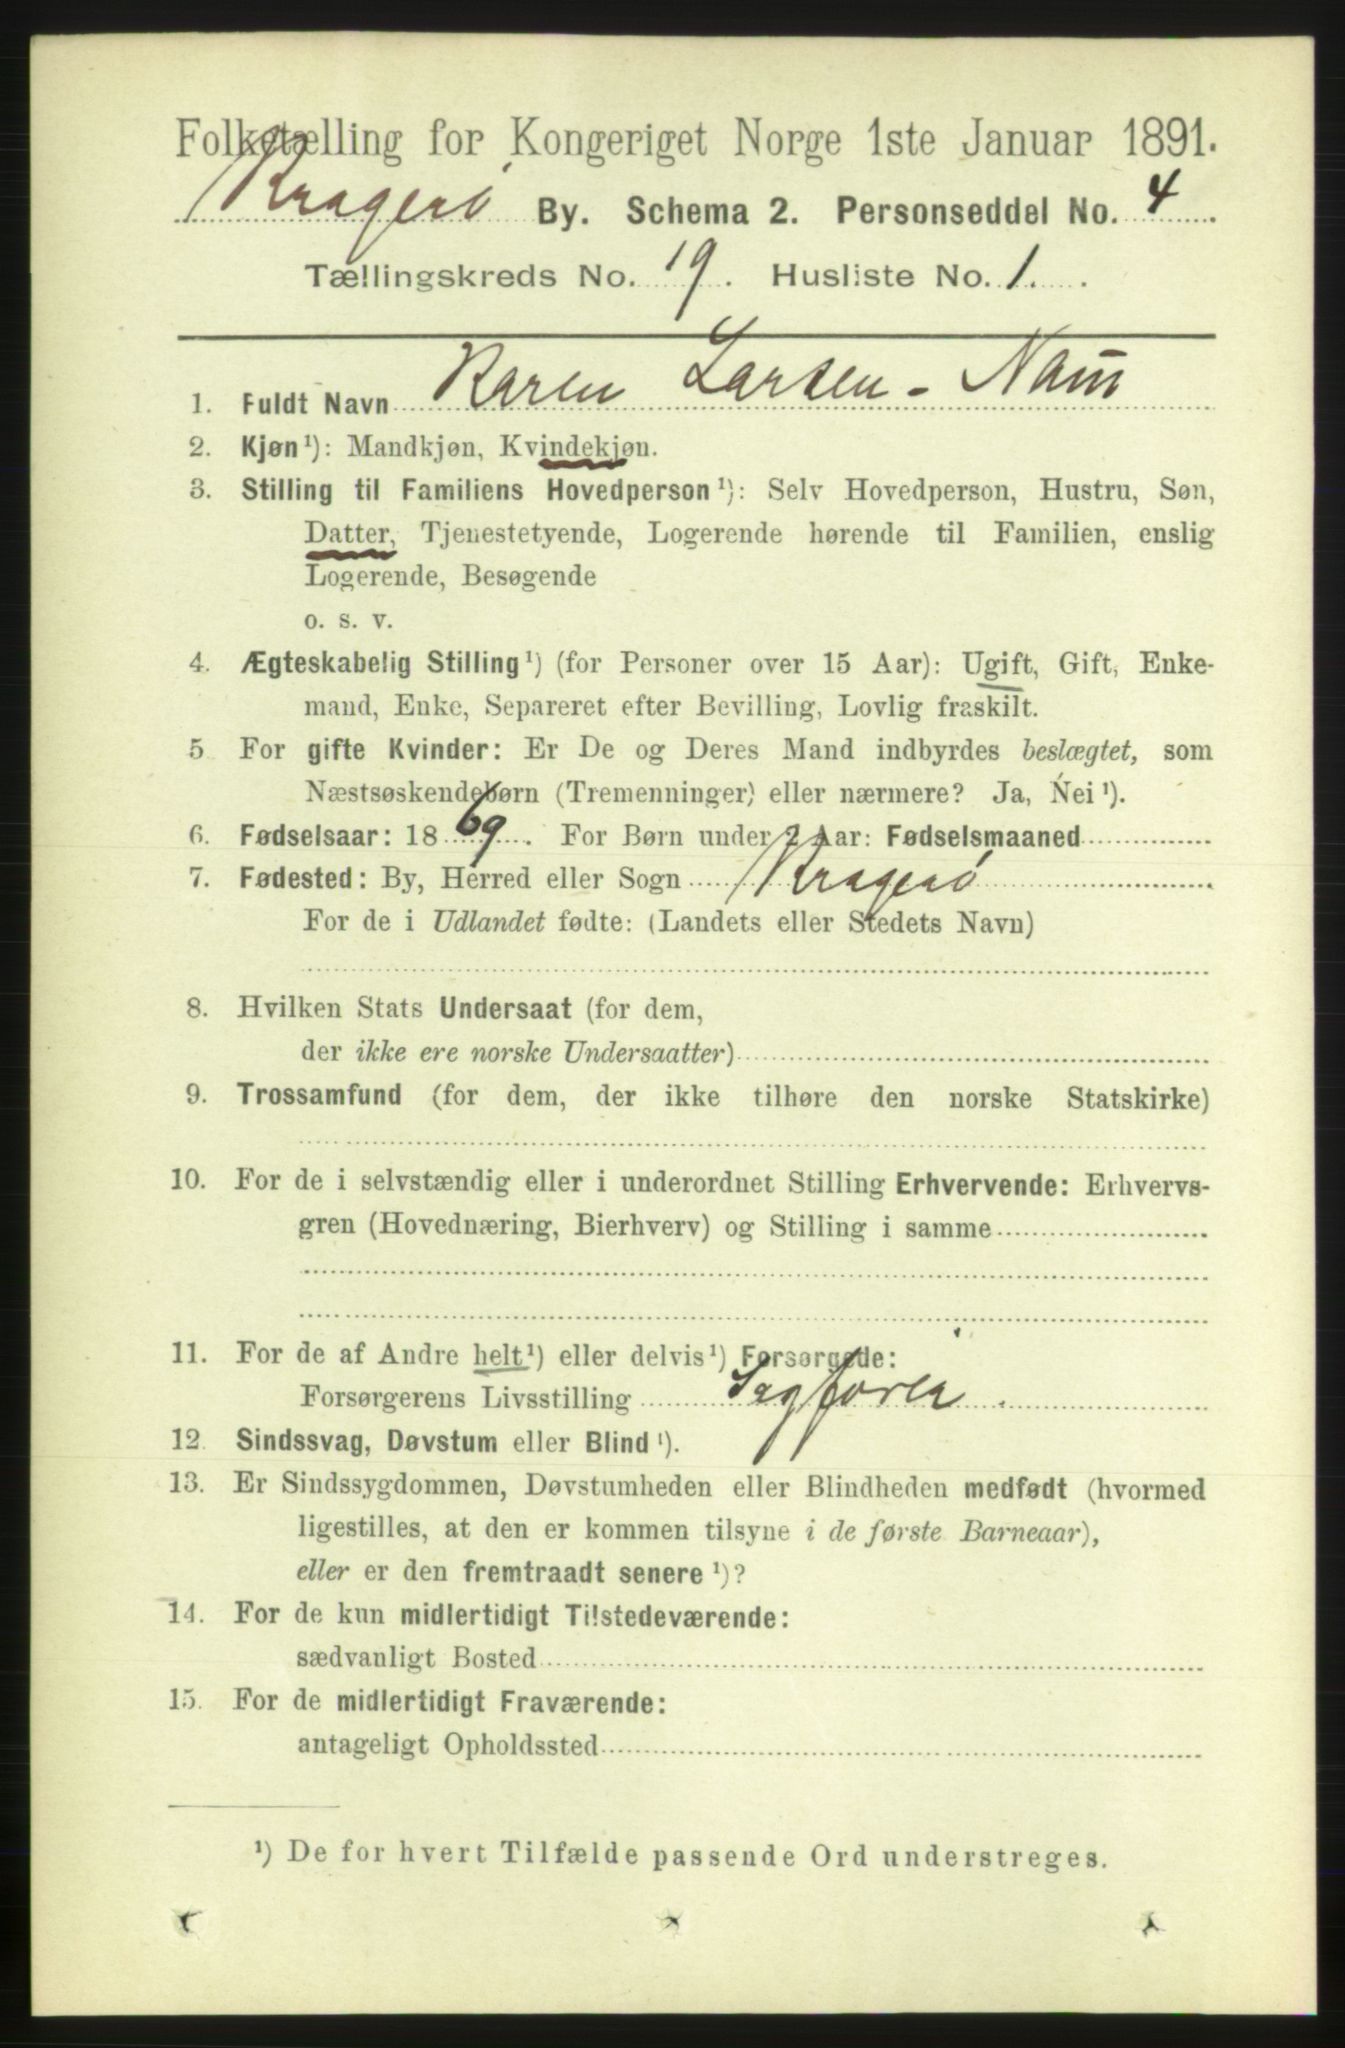 Folketælling for Kongeriget Norge 1ste Januar 1891.
Kragerø By. Schema 2. Personseddel No. 4
Tællingskreds No. 19. Husliste No. 1.
1. Fuldt Navn Karen Larsen-
2. Kjøn¹): Mandkjøn, Kvindekjøn.
3. Stilling til Familiens Hovedperson¹): Selv Hovedperson, Hustru, Søn,
Datter, Tjenestetyende, Logerende hørende til Familien, enslig
Logerende, Besøgende
o. s. v.
4. Ægteskabelig Stilling¹) (for Personer over 15 Aar): Ugift, Gift, Enke-
mand, Enke, Separeret efter Bevilling, Lovlig fraskilt.
5 For gifte Kvinder: Er De og Deres Mand indbyrdes beslægtet, som
Næstsøskendebørn (Tremenninger) eller nærmere? Ja, Nei¹).
6. Fødselsaar: 1869. For Børn under 2 Aar: Fødselsmaaned
7. Fødested: By, Herred eller Sogn Kragerø
For de i Udlandet fødte: (Landets eller Stedets Navn)
8. Hvilken Stats Undersaat (for dem,
der ikke ere norske Undersaatter)
9. Trossamfund (for dem, der ikke tilhøre den norske Statskirke)
10. For de i selvstændig eller i underordnet Stilling Erhvervende: Erhvervs-
gren (Hovednæring, Bierhverv) og Stilling i samme
11. For de af Andre helt¹) eller delvis¹) Forsørgede:
Forsørgerens Livsstilling Sagfører.
12. Sindssvag, Døvstum eller Blind¹).
13. Er Sindssygdommen, Døvstumheden eller Blindheden medfødt (hvormed
ligestilles, at den er kommen tilsyne i de første Barneaar),
eller er den fremtraadt senere¹)?
14. For de kun midlertidigt Tilstedeværende:
sædvanligt Bosted
15. For de midlertidigt Fraværende:
antageligt Opholdssted
¹) De for hvert Tilfælde passende Ord understreges.